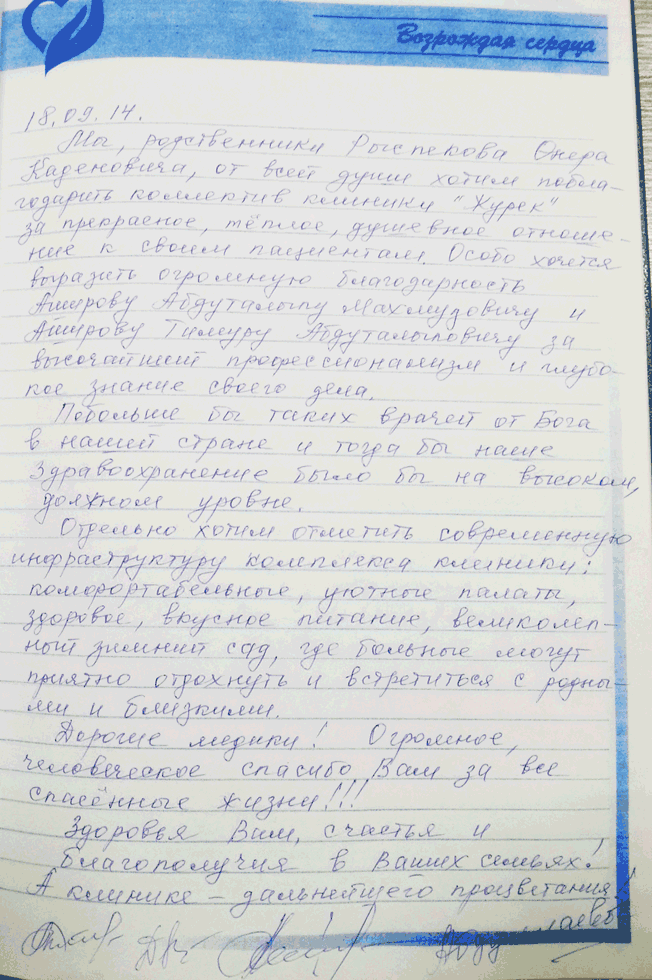 Возрождая сердца
18.09.14.
Мы, родственники Рыспекова Онера
Каденовича, от всей души хотим побла-
годарить коллектив клиники "Журек"
за прекрасное, тёплое, душевное отноше-
ние к своим пациентам. Особо хочется
выразить огромную благодарность
Аширову Абдуталыпу Махмудовичу и
Аширову Тимуру Абдуталыповичу за
высочайший профессионализм и глубо-
кое знание своего дела.
Побольше бы таких врачей от Бога
в нашей стране и тогда бы наше
здравоохранение было бы на высоком,
должном уровне.
Отдельно хотим отметить современную
инфраструктуру комплекса клиники:
комфортабельные, уютные палаты,
здоровое, вкусное питание, великолеп-
ный зимний сад, где больные могут
приятно отдохнуть и встретиться с родны-
ми и близкими.
Дорогие медики! Огромное,
человеческое спасибо Вам за все
спасённые жизни!!!
Здоровья Вам, счастья и
благополучия в Ваших семьях!
А клинике – дальнейшего процветания!